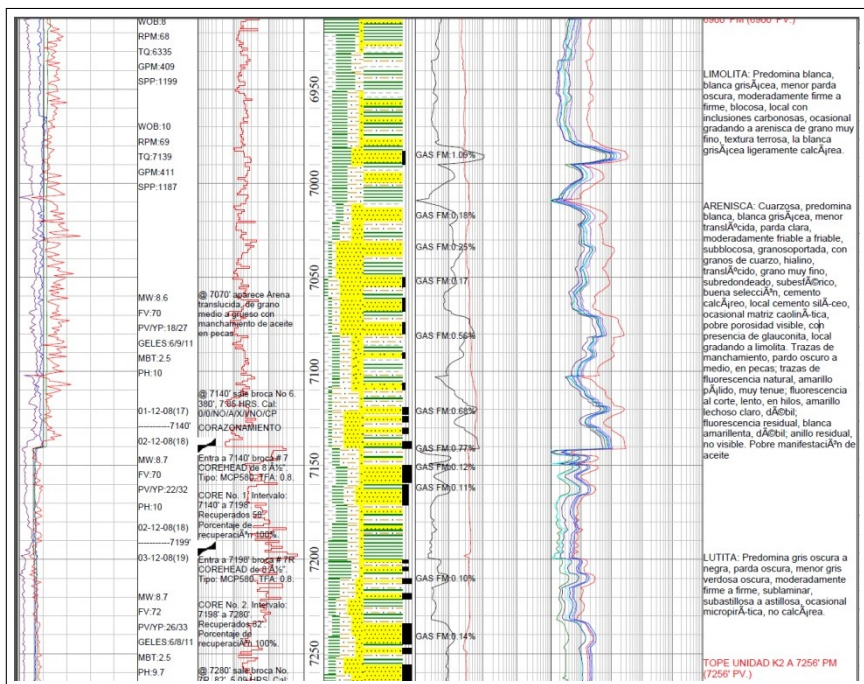 WOB:8
RPM:68
TQ:6335
GPM:409
SPP:1199
WOB:10
RPM:69
TQ:7139
GPM:411
SPP:1187
MW:8.6
FV:70
PV/YP:18/27
GELES:6/9/11
MBT:2.5
PH:10
01-12-08(17)
----------7140'
02-12-08(18)
MW:8.7
FV:70
PV/YP:22/32
PH:10
02-12-08(18)
----------7199'
03-12-08(19)
MW:8.7
FV:72
PV/YP:26/33
GELES:6/8/11
MBT:2.5
PH:9.7
@ 7070' aparece Arena
translucida, de grano
medio a grueso con
manchamiento de aceite
en pecas.
@ 7140' sale broca No 6.
380', 7.85 HRS. Cal:
0/0/NO/A/X/I/NO/CP
CORAZONAMIENTO
Entra a 7140' broca # 7
COREHEAD de 8 Â½".
Tipo: MCP580. TFA: 0.8.
CORE No. 1. Intervalo:
7140' a 7198'.
Recuperados 58'
Porcentaje de
recuperaciÃ³n 100%.
Entra a 7198' broca # 7R
COREHEAD de 8 Â½".
Tipo: MCP580. TFA: 0.8.
CORE No. 2. Intervalo:
7198' a 7280'.
Recuperados 82'
Porcentaje de
recuperaciÃ³n 100%.
@ 7280' sale broca No.
7R, 82', 5.09 HRS. Cal:
6950
7000
7050
7100
7150
7200
7250
GAS FM:1.09%
GAS FM:0.18%
GAS FM:0.25%
GAS FM:0.17
GAS FM:0.56%
GAS FM:0.68%
GAS FM:0.77%
GAS FM:0.12%
GAS FM:0.11%
GAS FM:0.10%
GAS FM:0.14%
6900' PM (6900' PV.)
LIMOLITA: Predomina blanca,
blanca grisÃ¡cea, menor parda
oscura, moderadamente firme a
firme, blocosa, local con
inclusiones carbonosas, ocasional
gradando a arenisca de grano muy
fino, textura terrosa, la blanca
grisÃ¡cea ligeramente calcÃ¡rea.
ARENISCA: Cuarzosa, predomina
blanca, blanca grisÃ¡cea, menor
translÃºcida, parda clara,
moderadamente friable a friable,
subblocosa, granosoportada, con
granos de cuarzo, hialino,
translÃºcido, grano muy fino,
subredondeado, subesfÃ©rico,
buena selecciÃ³n, cemento
calcÃ¡reo, local cemento silÃ­ceo,
ocasional matriz caolinÃ­tica,
pobre porosidad visible, con
presencia de glauconita, local
gradando a limolita. Trazas de
manchamiento, pardo oscuro a
medio, en pecas; trazas de
fluorescencia natural, amarillo
pÃ¡lido, muy tenue; fluorescencia
al corte, lento, en hilos, amarillo
lechoso claro, dÃ©bil;
fluorescencia residual, blanca
amarillenta, dÃ©bil; anillo residual,
no visible. Pobre manifestaciÃ³n de
aceite
LUTITA: Predomina gris oscura a
negra, parda oscura, menor gris
verdosa oscura, moderadamente
firme a firme, sublaminar,
subastillosa a astillosa, ocasional
micropirÃ­tica, no calcÃ¡rea.
TOPE UNIDAD K2 A 7256' PM
(7256' PV.)